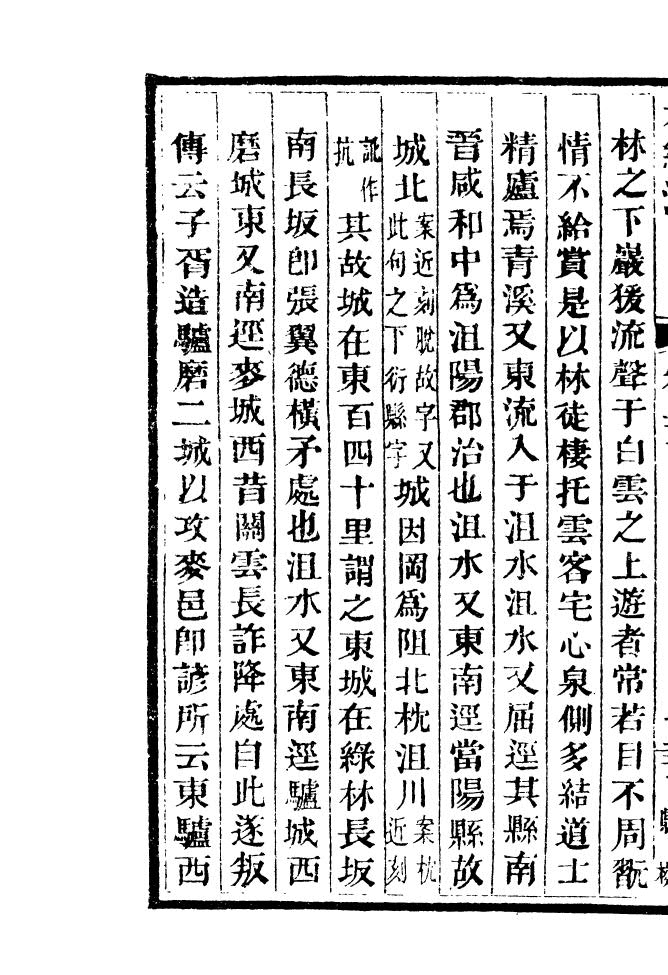 林之下巖猨流聲于白雲之上遊者常若目不周翫
情不給賞是以林徒棲托雲客宅心泉側多結道士
精廬焉青溪又東流入于沮水沮水又屈逕其縣南
晉咸和中為沮陽郡治也沮水又東南逕當陽縣故
城北案近刻脫故字又此句之下衍縣字城因岡為阻北枕沮川案枕近刻
訛作抗其故城在東百四十里謂之東城在綠林長坂
南長坂卽張翼德橫矛處也沮水又東南逕驢城西
磨城東又南逕麥城西昔關雲長詐降處自此遂叛
傳云子胥造驢磨二城以攻麥邑卽諺所云東驢西